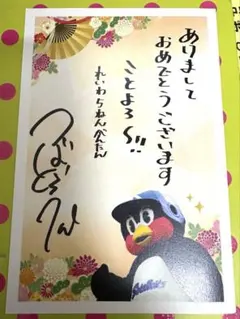 ありまして
おめでとうございます
ことよろ〜!!
れいわらねんがんたん
つばくろう
Swallows